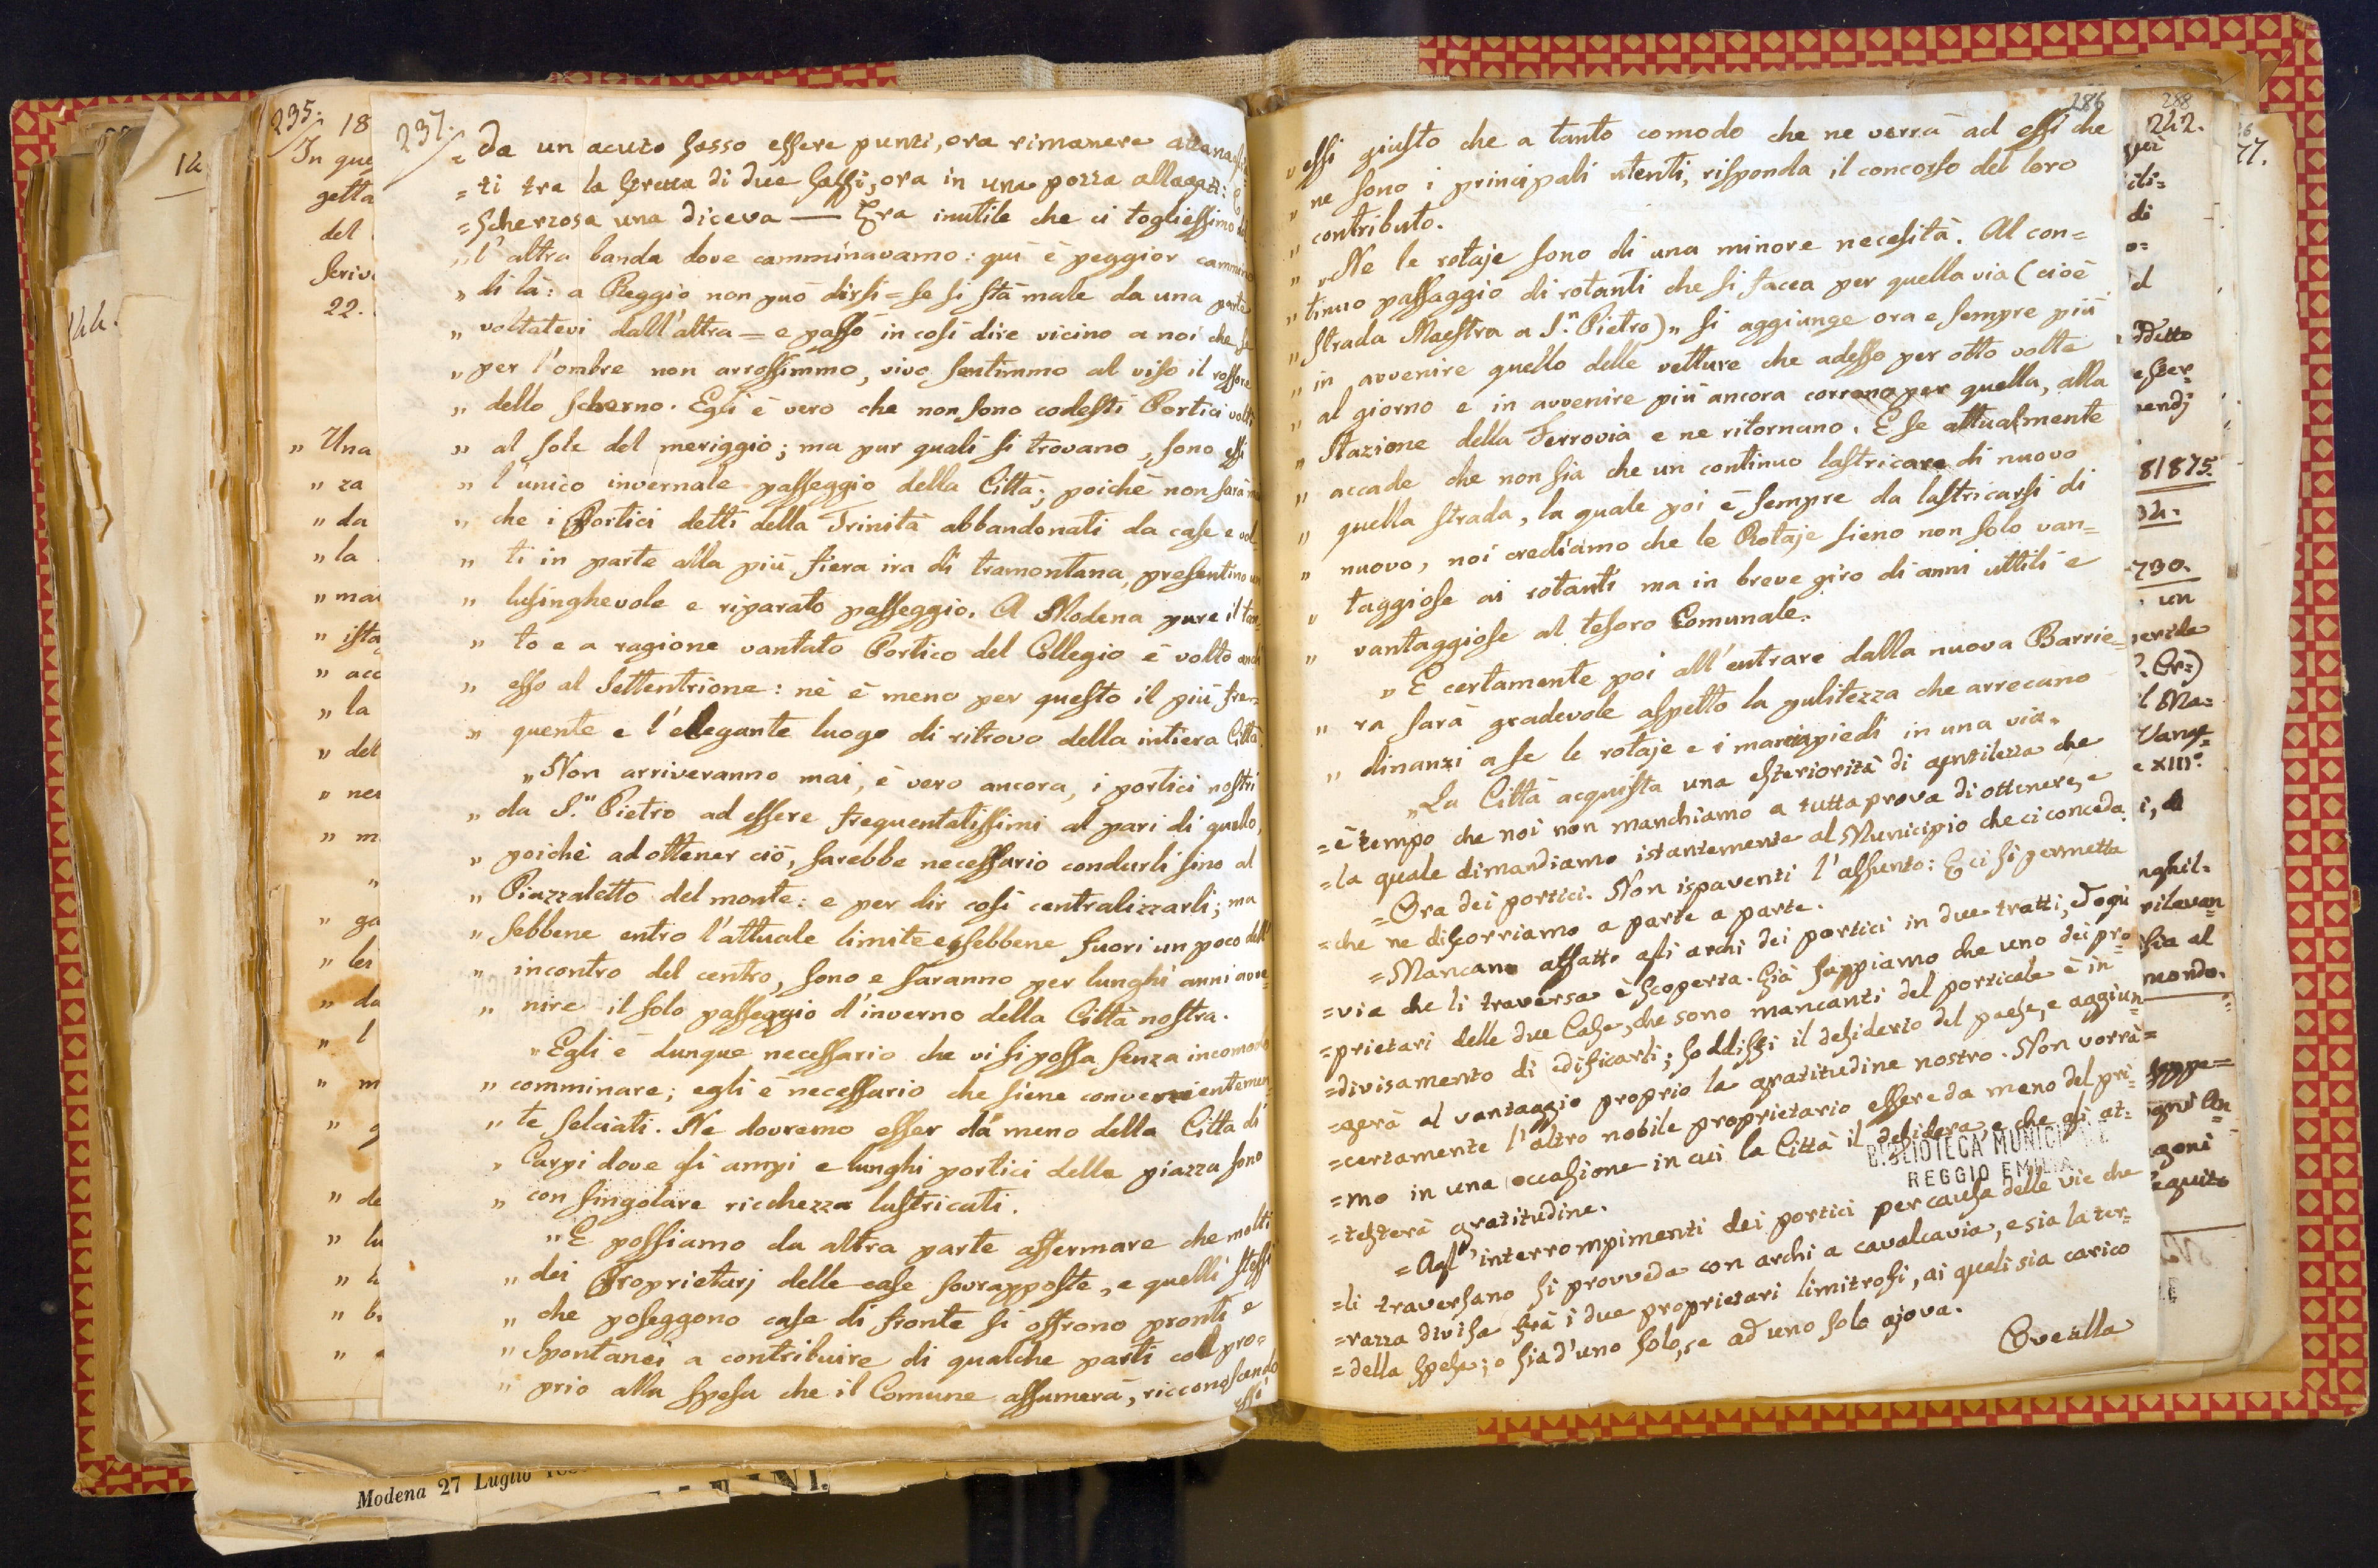 235.
18
In que
getta
del
scriv
22.
" Una
" za
" da
" la
" mai
" ista
" acc
" la
" del
" nei
" m
"
" ga
" lei
" da
" l
" m
" g
" de
" lu
" b
"
14
144.
237.
= da un acuto sasso essere punti, ora rimanere attanagl
= ti tra la stretta di due sassi, ora in una pozza allagati: E
= scherzosa una diceva — Era inutile che ci togliessimo dal
" l'altra banda dove camminavamo: qui è peggior cammino
" di là: a Reggio non può dirsi = se si stà male da una parte
" voltatevi dall'altra = e passò in così dire vicino a noi che se
" per l'ombre non arrossimmo, vivo sentimmo al viso il rossore
" dello scherno. Egli è vero che non sono codesti Portici volti
" al sole del meriggio; ma pur quali si trovano, sono essi
" l'unico invernale passeggio della Città; poichè non sarà mai
" che i Portici detti della Trinità abbandonati da case e vol-
" ti in parte alla più fiera ira di tramontana, presentino un
" lusinghevole e riparato passeggio. A Modena pure il tan-
" to e a ragione vantato Portico del Collegio è volto anch'
" esso al Settentrione: nè è meno per questo il più fre-
" quente e l'elegante luogo di ritrovo della intiera Città.
" Non arriveranno mai, è vero ancora, i portici nostri
" da S.n Pietro ad essere frequentatissimi al pari di quello,
" poichè ad ottener ciò, sarebbe necessario condurli sino al
" Piazzaletto del monte: e per dir così centralizzarli; ma
" sebbene entro l'attuale limite e sebbene fuori un poco dell'
" incontro del centro, sono e saranno per lunghi anni avve-
" nire il solo passeggio d'inverno della Città nostra.
" Egli è dunque necessario che vi si possa senza incomodo
" comminare; egli è necessario che siene convenientemen-
" te selciati. Ne dovremo esser da meno della Città di
" Carpi dove gli ampi e lunghi portici della piazza sono
" con singolare ricchezza lastricati.
" E possiamo da altra parte affermare che molti
" dei Proprietarj delle case sovrapposte, e quelli stessi
" che poseggono case di fronte si offrono pronti e
" spontanei a contribuire di qualche parti coll pro=
" prio alla spesa che il Comune assumerà, ricconoscendo
essi
Modena 27 Luglio
286
" essi giusto che a tanto comodo che ne verrà ad essi che
" ne sono i principali utenti, risponda il concorso del loro
" contributo.
" " Ne le rotaje sono di una minore necesità. Al con=
" tinuo passaggio di rotanti che si facea per quella via (cioè
" Strada Maestra a S.n Pietro) " si aggiunge ora e sempre più
" in avvenire quello delle vetture che adesso per otto volte
" al giorno e in avvenire più ancora corrono per quella, alla
" Stazione della Ferrovia e ne ritornano. E se attualmente
" accade che non sia che un continuo lastricare di nuovo
" quella strada, la quale poi è sempre da lastricarsi di
" nuovo, noi crediamo che le Rotaje sieno non solo van=
" taggiose ai rotanti ma in breve giro di anni uttili e
" vantaggiose al tesoro Comunale.
" E certamente poi all'entrare dalla nuova Barrie=
" ra sarà gradevole aspetto la pulitezza che arrecano
" dinanzi a se le rotaje e i marciapiedi in una via.
" La Città acquista una esteriorità di gentilezza che
= è tempo che noi non manchiamo a tutta prova di ottenere, e
= la quale dimandiamo istantemente al Municipio che ci conceda.
= Ora dei portici. Non ispaventi l'assunto: E ci si permetta
= che ne discorriamo a parte a parte.
= Mancano affatto gli archi dei portici in due tratti, d'ogni
= via che li traversa è scoperta. Già sappiamo che uno dei pro-
= prietari delle due Case, che sono mancanti del porticale è in-
= divisamento di edificarli; soddissi il desiderio del paese, e aggiun-
= gerà al vantaggio proprio la gratitudine nostro. Non vorrà=
= certamente l'altro nobile proprietario essere da meno del pri-
= mo in una occasione in cui la Città il desidera, e che gli at=
= testerà gratitudine.
BIBLIOTECA MUNICIPALE
REGGIO EMILIA
= Agl'interrompimenti dei portici per causa delle vie che
= li traversano si provveda con archi a cavalcavia, e sia la ter-
= razza divisa frà i due proprietari limitrofi, ai quali sia carico
= della spese; o sia d'uno solo, se ad uno solo gjova.
Ove alla
288
242.
ili=
di
o=
d
ddetto
81875.
34.
730.
un
l Ma=
Vang=
e XIII°
nghil=
rilevan
sia al
mondo.
seppe=
ogni An
goni
eguito
77.